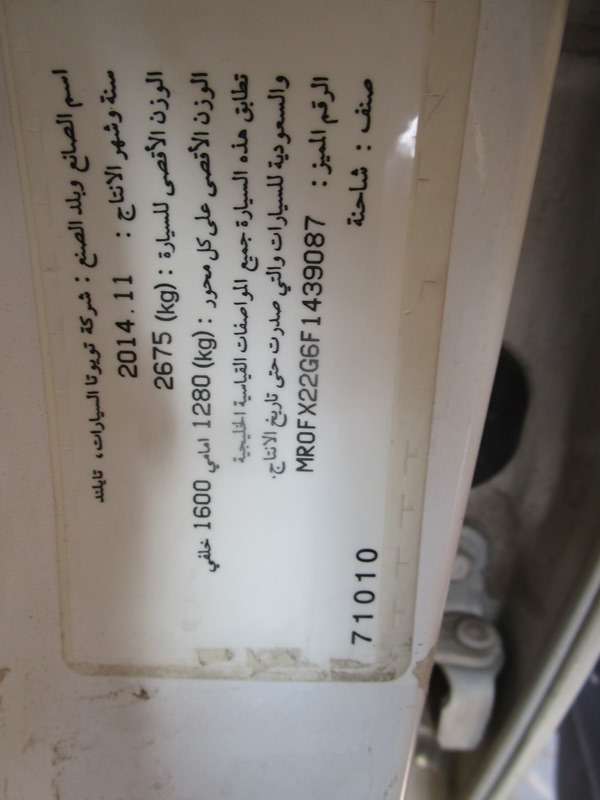 اسم الصانع وبلد الصنع : شركة تويوتا السيارات، تايلند
سنة وشهر الانتاج : 2014.11
الوزن الأقصى للسيارة : (kg) 2675
الوزن الأقصى على كل محور : (kg) 1280 امامي 1600 خلفي
تطابق هذه السيارة جميع المواصفات القياسية الخليجية
والسعودية للسيارات والتي صدرت حتى تاريخ الانتاج.
الرقم المميز : MR0FX22G6F1439087
صنف : شاحنة
71010